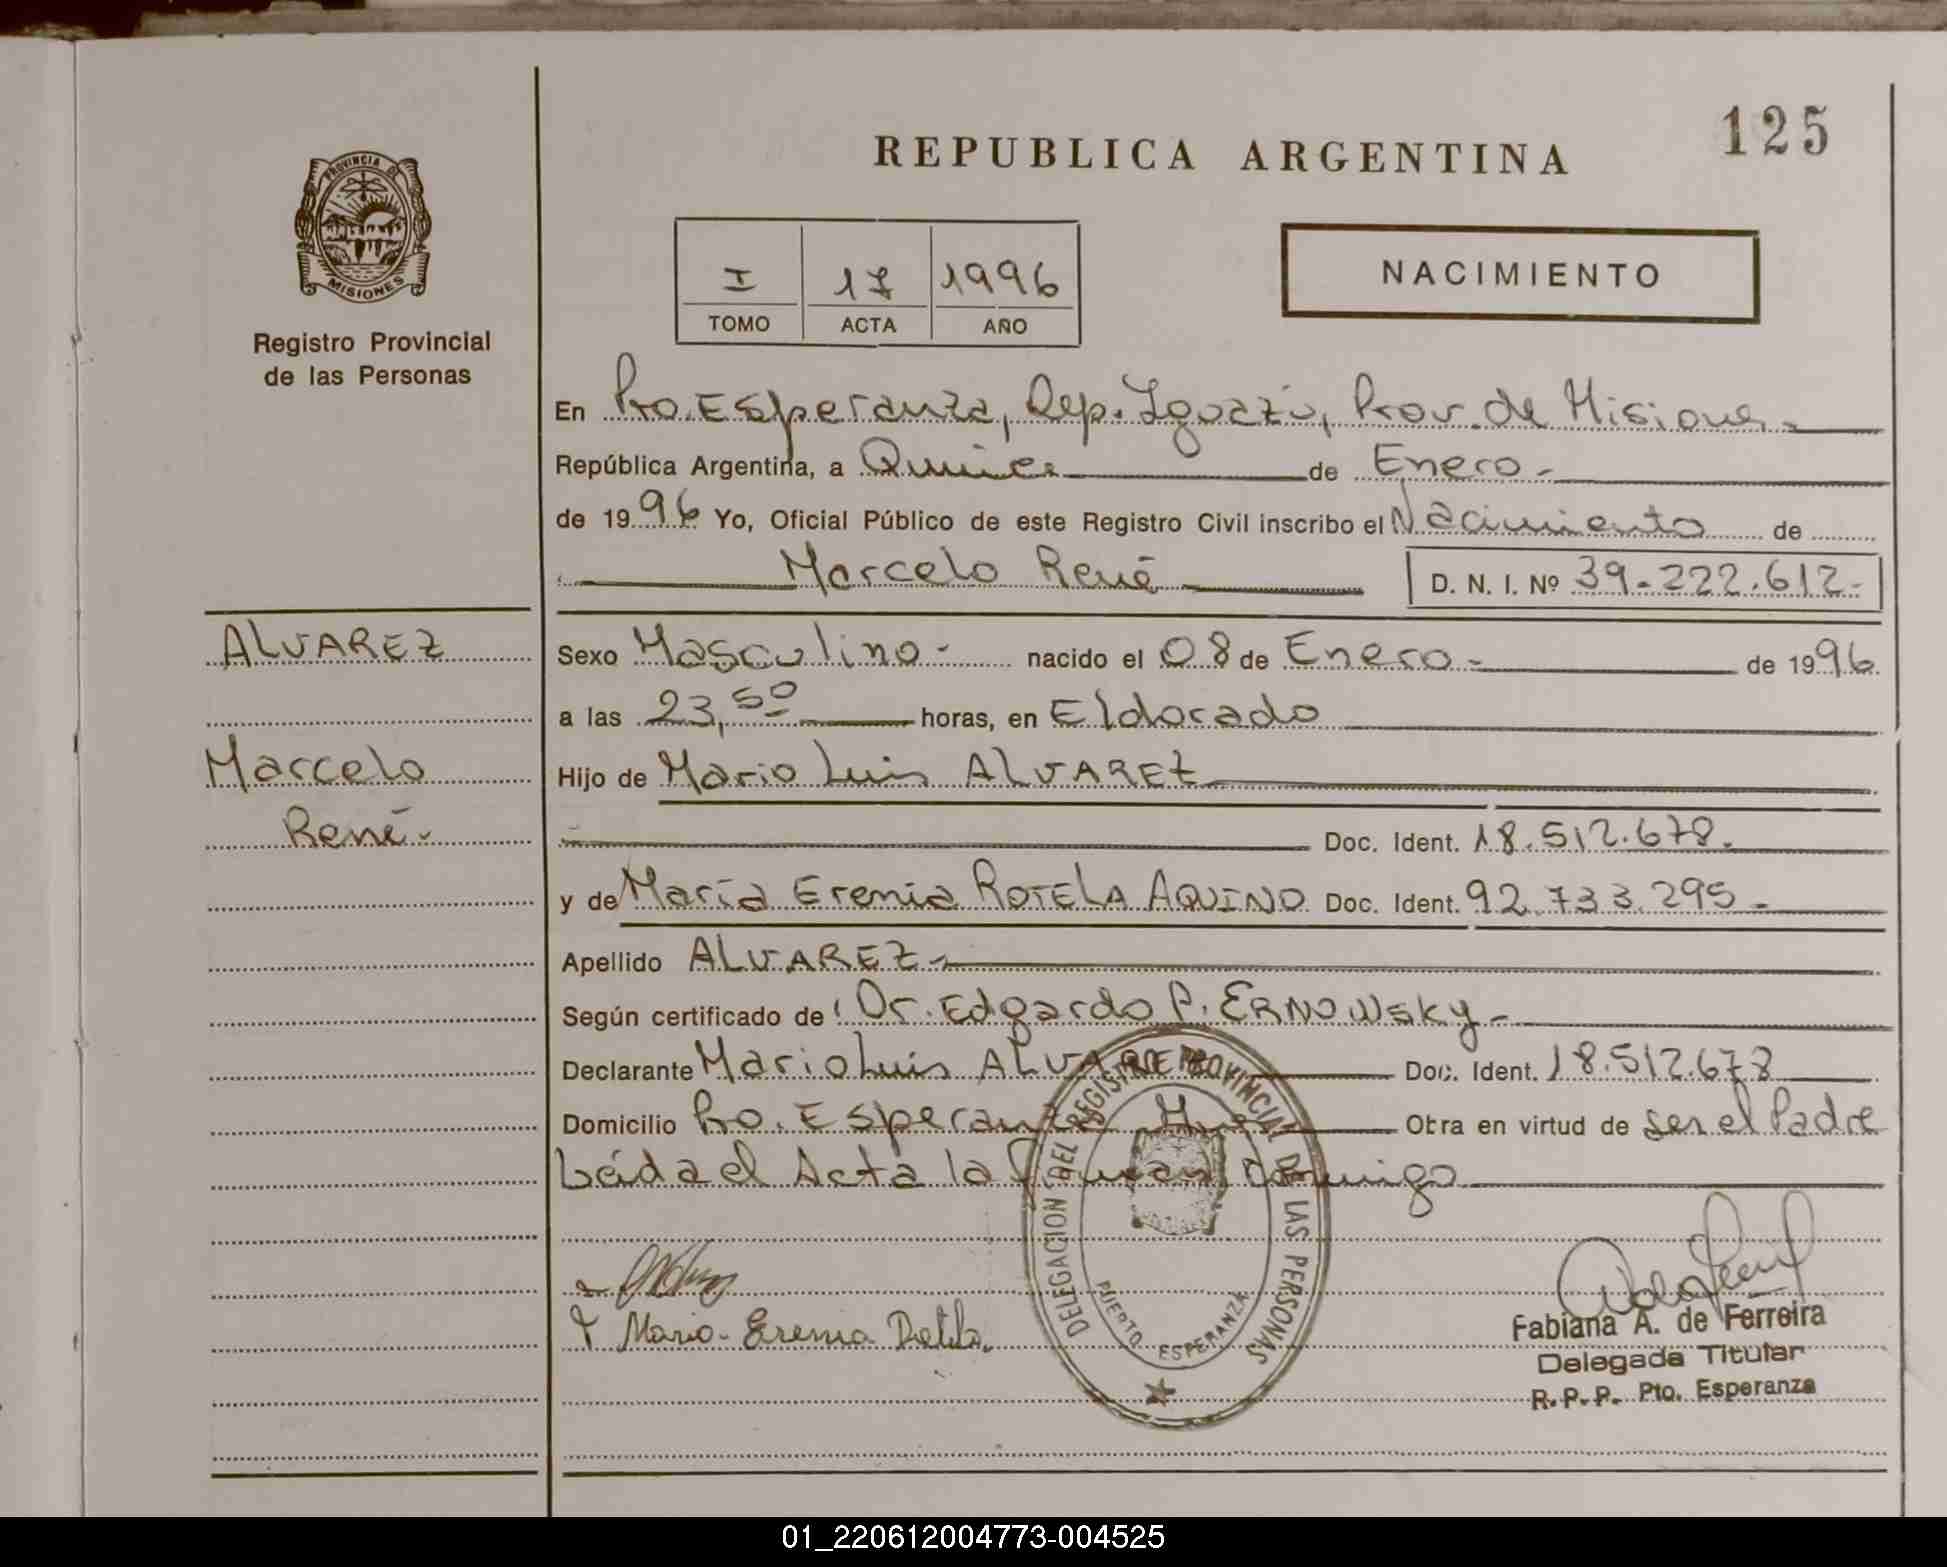 125
REPUBLICA ARGENTINA
PROVINCIA DE
MISIONES
Registro Provincial
de las Personas
I 17 1996
TOMO ACTA AÑO
NACIMIENTO
En Pto. Esperanza, Dep. Iguazú, Prov. de Misiones
República Argentina, a Quince de Enero
de 1996 Yo, Oficial Público de este Registro Civil inscribo el Nacimiento de
Marcelo René D. N. I. Nº 39.222.612
ALVAREZ
Marcelo
René
Sexo Masculino nacido el 08 de Enero de 1996
a las 23,50 horas, en Eldorado
Hijo de Mario Luis ALVAREZ
Doc. Ident. 18.512.678
y de María Eremia ROTELA AQUINO Doc. Ident. 92.733.295
Apellido ALVAREZ
Según certificado de Dr. Edgardo P. ERNOWSKY
Declarante Mario Luis ALVAREZ Doc. Ident. 18.512.678
Domicilio Pto. Esperanza Mnes Obra en virtud de ser el Padre
Leída el Acta la firman conmigo
DELEGACION DEL REGISTRO PROVINCIAL DE LAS PERSONAS
PUERTO ESPERANZA
Fabiana A. de Ferreira
Delegada Titular
R. P. P. Pto. Esperanza
01_220612004773-004525